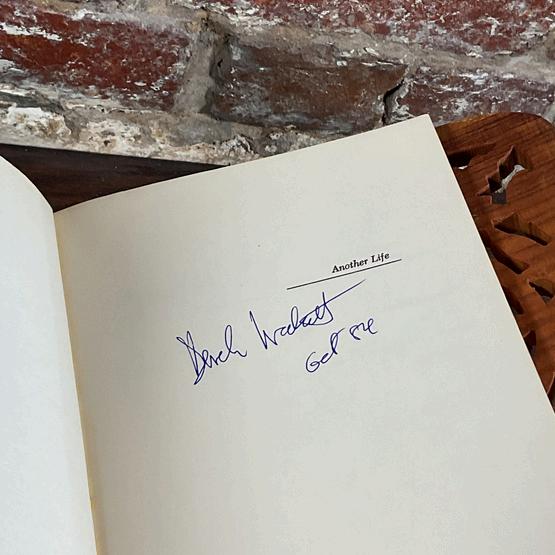 Another Life
Derek Walcott
Oct 84